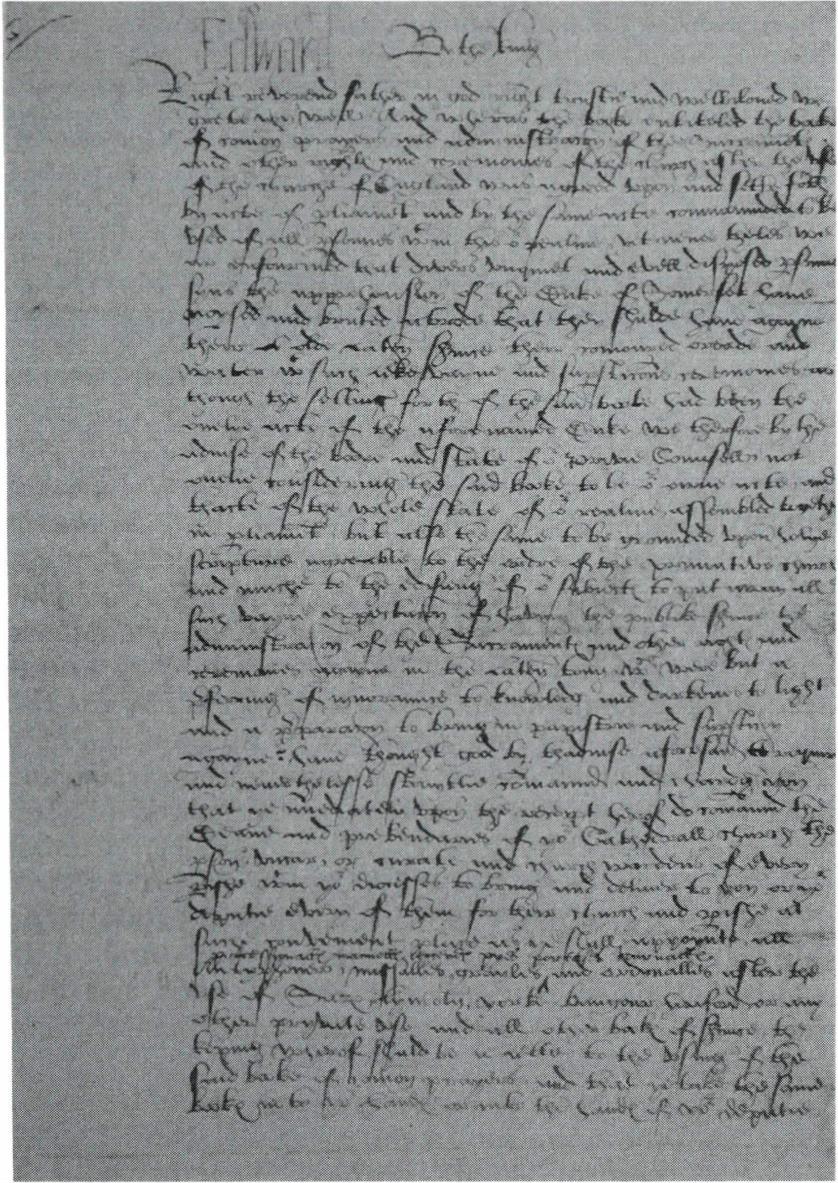 Edward By the king
Right reverend father in god right trustie and welbeloved we
grete you well And wheras the boke entiteled the boke
of comon prayers and administracon of the sacrament
and other rights and ceremonies of the church after the use
of the churche of England was agreed upon and sett forth
by acte of pliament and by the same acte commaunded to be
used of all psonnes wtin this or realme yet nevertheles we
are enfourmed that divers unquiet and evell disposed psonnes
sins the apprehension of the Duke of Somerset have
noysed and bruted abrode that they shulde have agayne
there olde laten service there conioured breade and
water wt such like vayne and supsticous ceremonies as
though the setting forth of the said boke had been the
onelie acte of the aforenamed Duke we therfore by the
advise of the bodie and state of or privie Counsell not
onelie considering the said boke to be or owne acte and
thacte of the whole state of or realme assembled togethr
in pliament but also the same to be grounded upon holie
scripture agreeable to the ordre of the primative church
and muche to the edifieng of or subiects to put away all
such vayne expectacon of having the publike service the
administracon of the Sacraments and other rights and
ceremonies agayne in the laten tong wch were but a
pferring of ignorannce to knowledg and darkenes to light
and a pparacon to bring in papistrie and supsticon
agayne have thought good by thadvise aforesaid to require
and neverthelesse straytlie comaund and charge you
that ye imediatelie upon the receipt herof do comaund the
Deane and prebendaries of yor Cathedrall church the
pson vicar or curate and church wardens of every
pishe wtin yor diocesses to bring and deliver to you or yor
deputie every of them for there church and pishe at
suche convenient place as ye shall appoynte all
Antiphoners missalles grayles
and ordynalles after the
use of Sarum Lincoln Yorke Bangour Herford or any
other pryvate use and all other boks of service the
keping wherof shuld be a lette to the using of the
said boke of comon prayers and that ye take the same
boks in to yor hands or into the hands of yor deputie